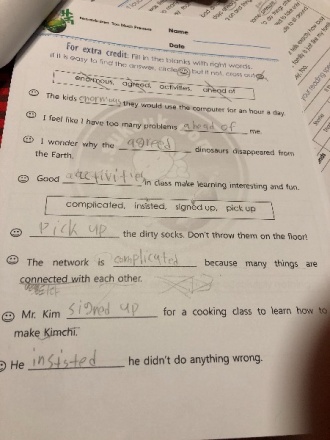 Name
Date
For extra credit: Fill in the blanks with right words.
If it is easy to find the answer, circle but if not, cross out
enormous, agreed, activities, ahead of
The kids enormous they would use the computer for an hour a day.
I feel like I have too many problems ahead of me.
I wonder why the agreed dinosaurs disappeared from
the Earth.
Good activities in class make learning interesting and fun.
complicated, insisted, signed up, pick up
Pick up the dirty socks. Don't throw them on the floor!
The network is complicated because many things are
connected with each other.
Mr. Kim signed up for a cooking class to learn how to
make Kimchi.
He insisted he didn't do anything wrong.